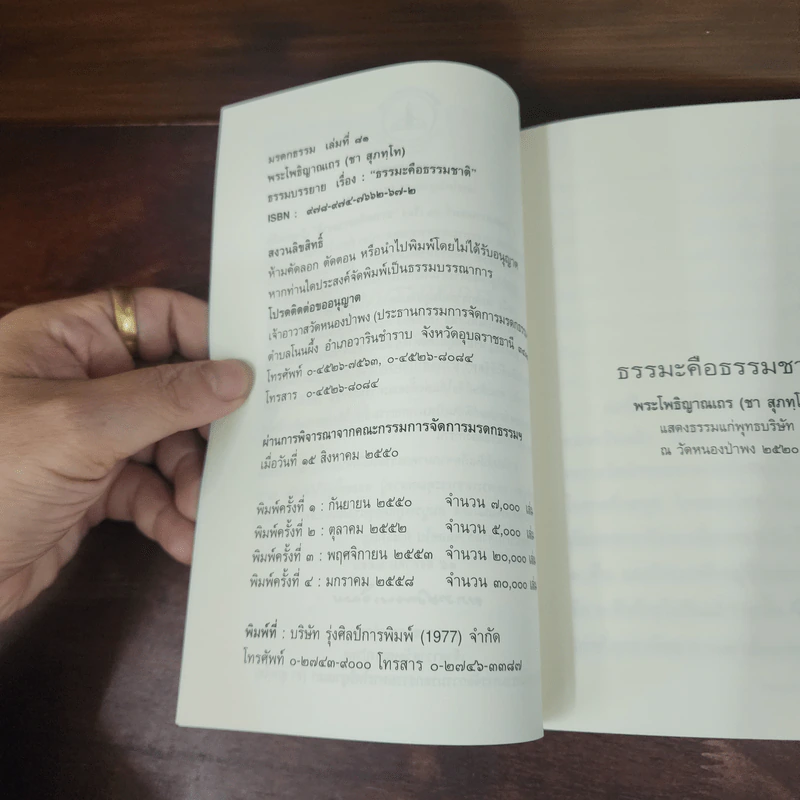 มรดกธรรม เล่มที่ ๗๑
พระโพธิญาณเถร (ชา สุภทฺโท)
ธรรมบรรยาย เรื่อง : "ธรรมะคือธรรมชาติ"
ISBN : ๙๗๘-๙๗๔-๗๖๖๒-๖๗-๒
สงวนลิขสิทธิ์
ห้ามคัดลอก ตัดตอน หรือนำไปพิมพ์โดยไม่ได้รับอนุญาต
หากท่านใดประสงค์จัดพิมพ์เป็นธรรมบรรณาการ
โปรดติดต่อขออนุญาต
เจ้าอาวาสวัดหนองป่าพง (ประธานกรรมการจัดการมรดกธรรม
ตำบลโนนผึ้ง อำเภอวารินชำราบ จังหวัดอุบลราชธานี
โทรศัพท์ ๐-๔๕๒๖-๗๕๖๓, ๐-๔๕๒๖-๘๐๘๔
โทรสาร ๐-๔๕๒๖-๘๐๘๔
ผ่านการพิจารณาจากคณะกรรมการจัดการมรดกธรรมฯ
เมื่อวันที่ ๑๕ สิงหาคม ๒๕๕๐
พิมพ์ครั้งที่ ๑ : กันยายน ๒๕๕๐ จำนวน ๗,๐๐๐
พิมพ์ครั้งที่ ๒ : ตุลาคม ๒๕๕๒ จำนวน ๕,๐๐๐
พิมพ์ครั้งที่ ๓ : พฤศจิกายน ๒๕๕๓ จำนวน ๒๐,๐๐๐
พิมพ์ครั้งที่ ๔ : มกราคม ๒๕๕๘ จำนวน ๓๐,๐๐๐
พิมพ์ที่ : บริษัท รุ่งศิลป์การพิมพ์ (1977) จำกัด
โทรศัพท์ ๐-๒๗๔๓-๙๐๐๐ โทรสาร ๐-๒๗๔๖-๓๓๘๗
ธรรมะคือธรรมชา
พระโพธิญาณเถร (ชา สุภทฺโ
แสดงธรรมแก่พุทธบริษัท
ณ วัดหนองป่าพง ๒๕๒๐